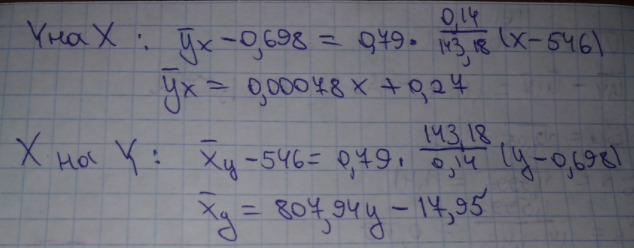 Y на X : ȳx − 0,698 = 0,79 · 0,14/143,18 (x − 546)
ȳx = 0,00078x + 0,27
X на Y : x̄y − 546 = 0,79 · 143,18/0,14 (y − 0,698)
x̄y = 807,94y − 17,95